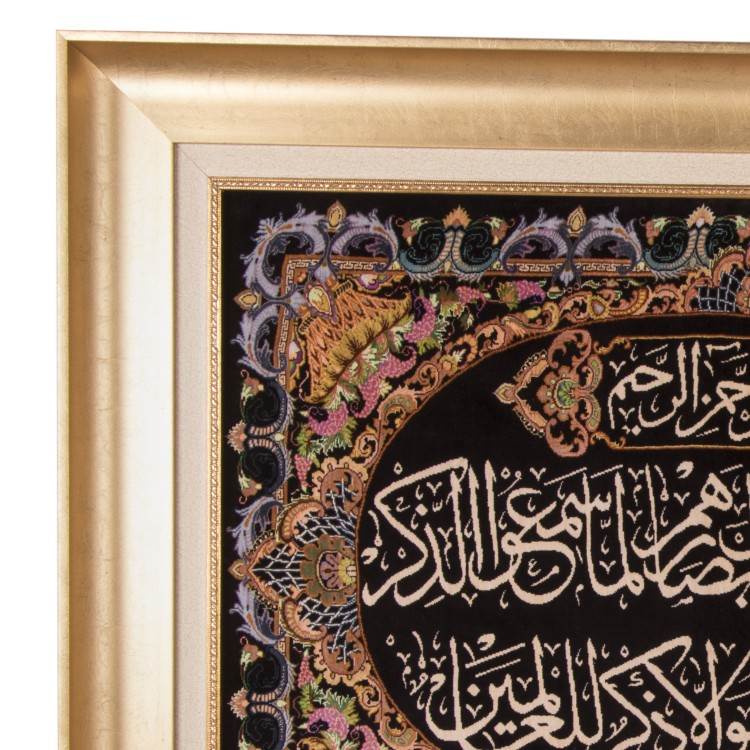 الرحیم
بصارهم لما سمعوا الذکر
الا ذکر للعالمین